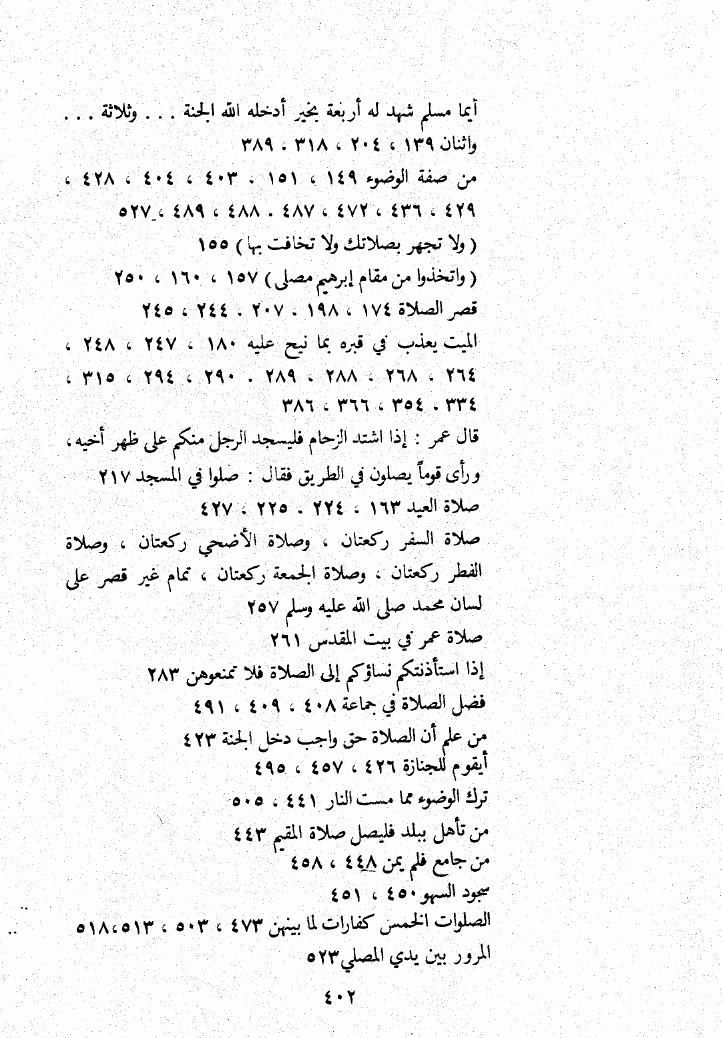 أيما مسلم شهد له أربعة بخير أدخله الله الجنة . . . وثلاثة . . .
واثنان ١٣٩ ، ٢٠٤ ، ٣١٨ . ٣٨٩
من صفة الوضوء ١٤٩ ، ١٥١ . ٤٠٣ ، ٤٠٤ ، ٤٢٨ ،
٤٢٩ ، ٤٣٦ ، ٤٧٢ ، ٤٨٧ . ٤٨٨ ، ٤٨٩ ، ٥٢٧
( ولا تجهر بصلاتك ولا تخافت بها ) ١٥٥
( واتخذوا من مقام إبرهيم مصلى ) ١٥٧ ، ١٦٠ ، ٢٥٠
قصر الصلاة ١٧٤ ، ١٩٨ . ٢٠٧ . ٢٤٤ ، ٢٤٥
الميت يعذب في قبره بما نيح عليه ١٨٠ ، ٢٤٧ ، ٢٤٨ ،
٢٦٤ . ٢٦٨ ، ٢٨٨ . ٢٨٩ . ٢٩٠ ، ٢٩٤ ، ٣١٥ ،
٣٣٤ . ٣٥٤ ، ٣٦٦ ، ٣٨٦
قال عمر : إذا اشتد الزحام فليسجد الرجل منكم على ظهر أخيه ،
ورأى قوماً يصلون في الطريق فقال : صلوا في المسجد ٢١٧
صلاة العيد ١٦٣ ، ٢٢٤ . ٢٢٥ ، ٤٢٧
صلاة السفر ركعتان ، وصلاة الأضحي ركعتان ، وصلاة
الفطر ركعتان ، وصلاة الجمعة ركعتان ، تمام غير قصر على
لسان محمد صلى الله عليه وسلم ٢٥٧
صلاة عمر في بيت المقدس ٢٦١
إذا استأذنتكم نساؤكم إلى الصلاة فلا تمنعوهن ٢٨٣
فضل الصلاة في جماعة ٤٠٨ ، ٤٠٩ ، ٤٩١
من علم أن الصلاة حق واجب دخل الجنة ٤٢٣
أيقوم للجنازة ٤٢٦ ، ٤٥٧ ، ٤٩٥
ترك الوضوء مما مست النار ٤٤١ ، ٥٠٥
من تأهل ببلد فليصل صلاة المقيم ٤٤٣
من جامع فلم يمن ٤٤٨ ، ٤٥٨
سجود السهو ٤٥٠ ، ٤٥١
الصلوات الخمس كفارات لما بينهن ٤٧٣ ، ٥٠٣ ، ٥١٣،٥١٨
المرور بين يدي المصلي ٥٢٣
٤٠٢